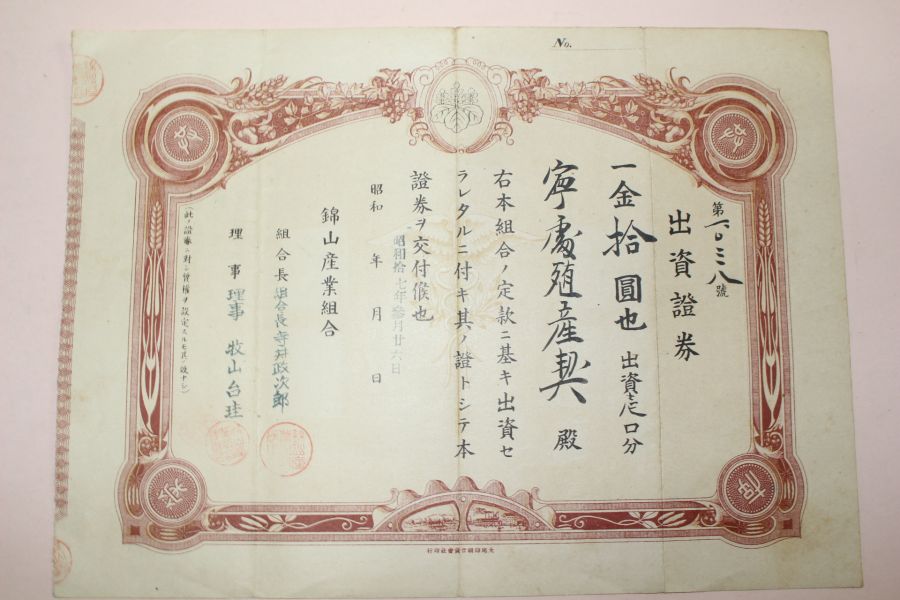 No.
第六〇三八號
出資證券
一金拾圓也 出資壱口分
寧處殖産契 殿
右本組合ノ定款ニ基キ出資セ
ラレタルニ付キ其ノ證トシテ本
證券ヲ交付候也
昭和 年 月 日
昭和拾七年参月廿六日
錦山産業組合
組合長 組合長寺井政次郎
理事 理事 牧山台珪
(此ノ證券ニ對シ質權ヲ設定スルモ其ノ效ナシ)